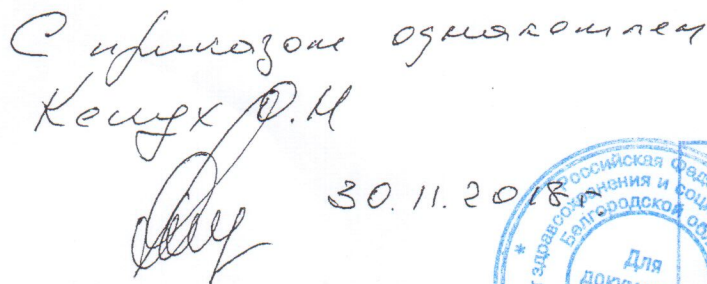 С приказом ознакомлен
О.Н
30.11.2018 г.
Российская Феде
здравоохранения и соци
Белгородской об
Для
докум